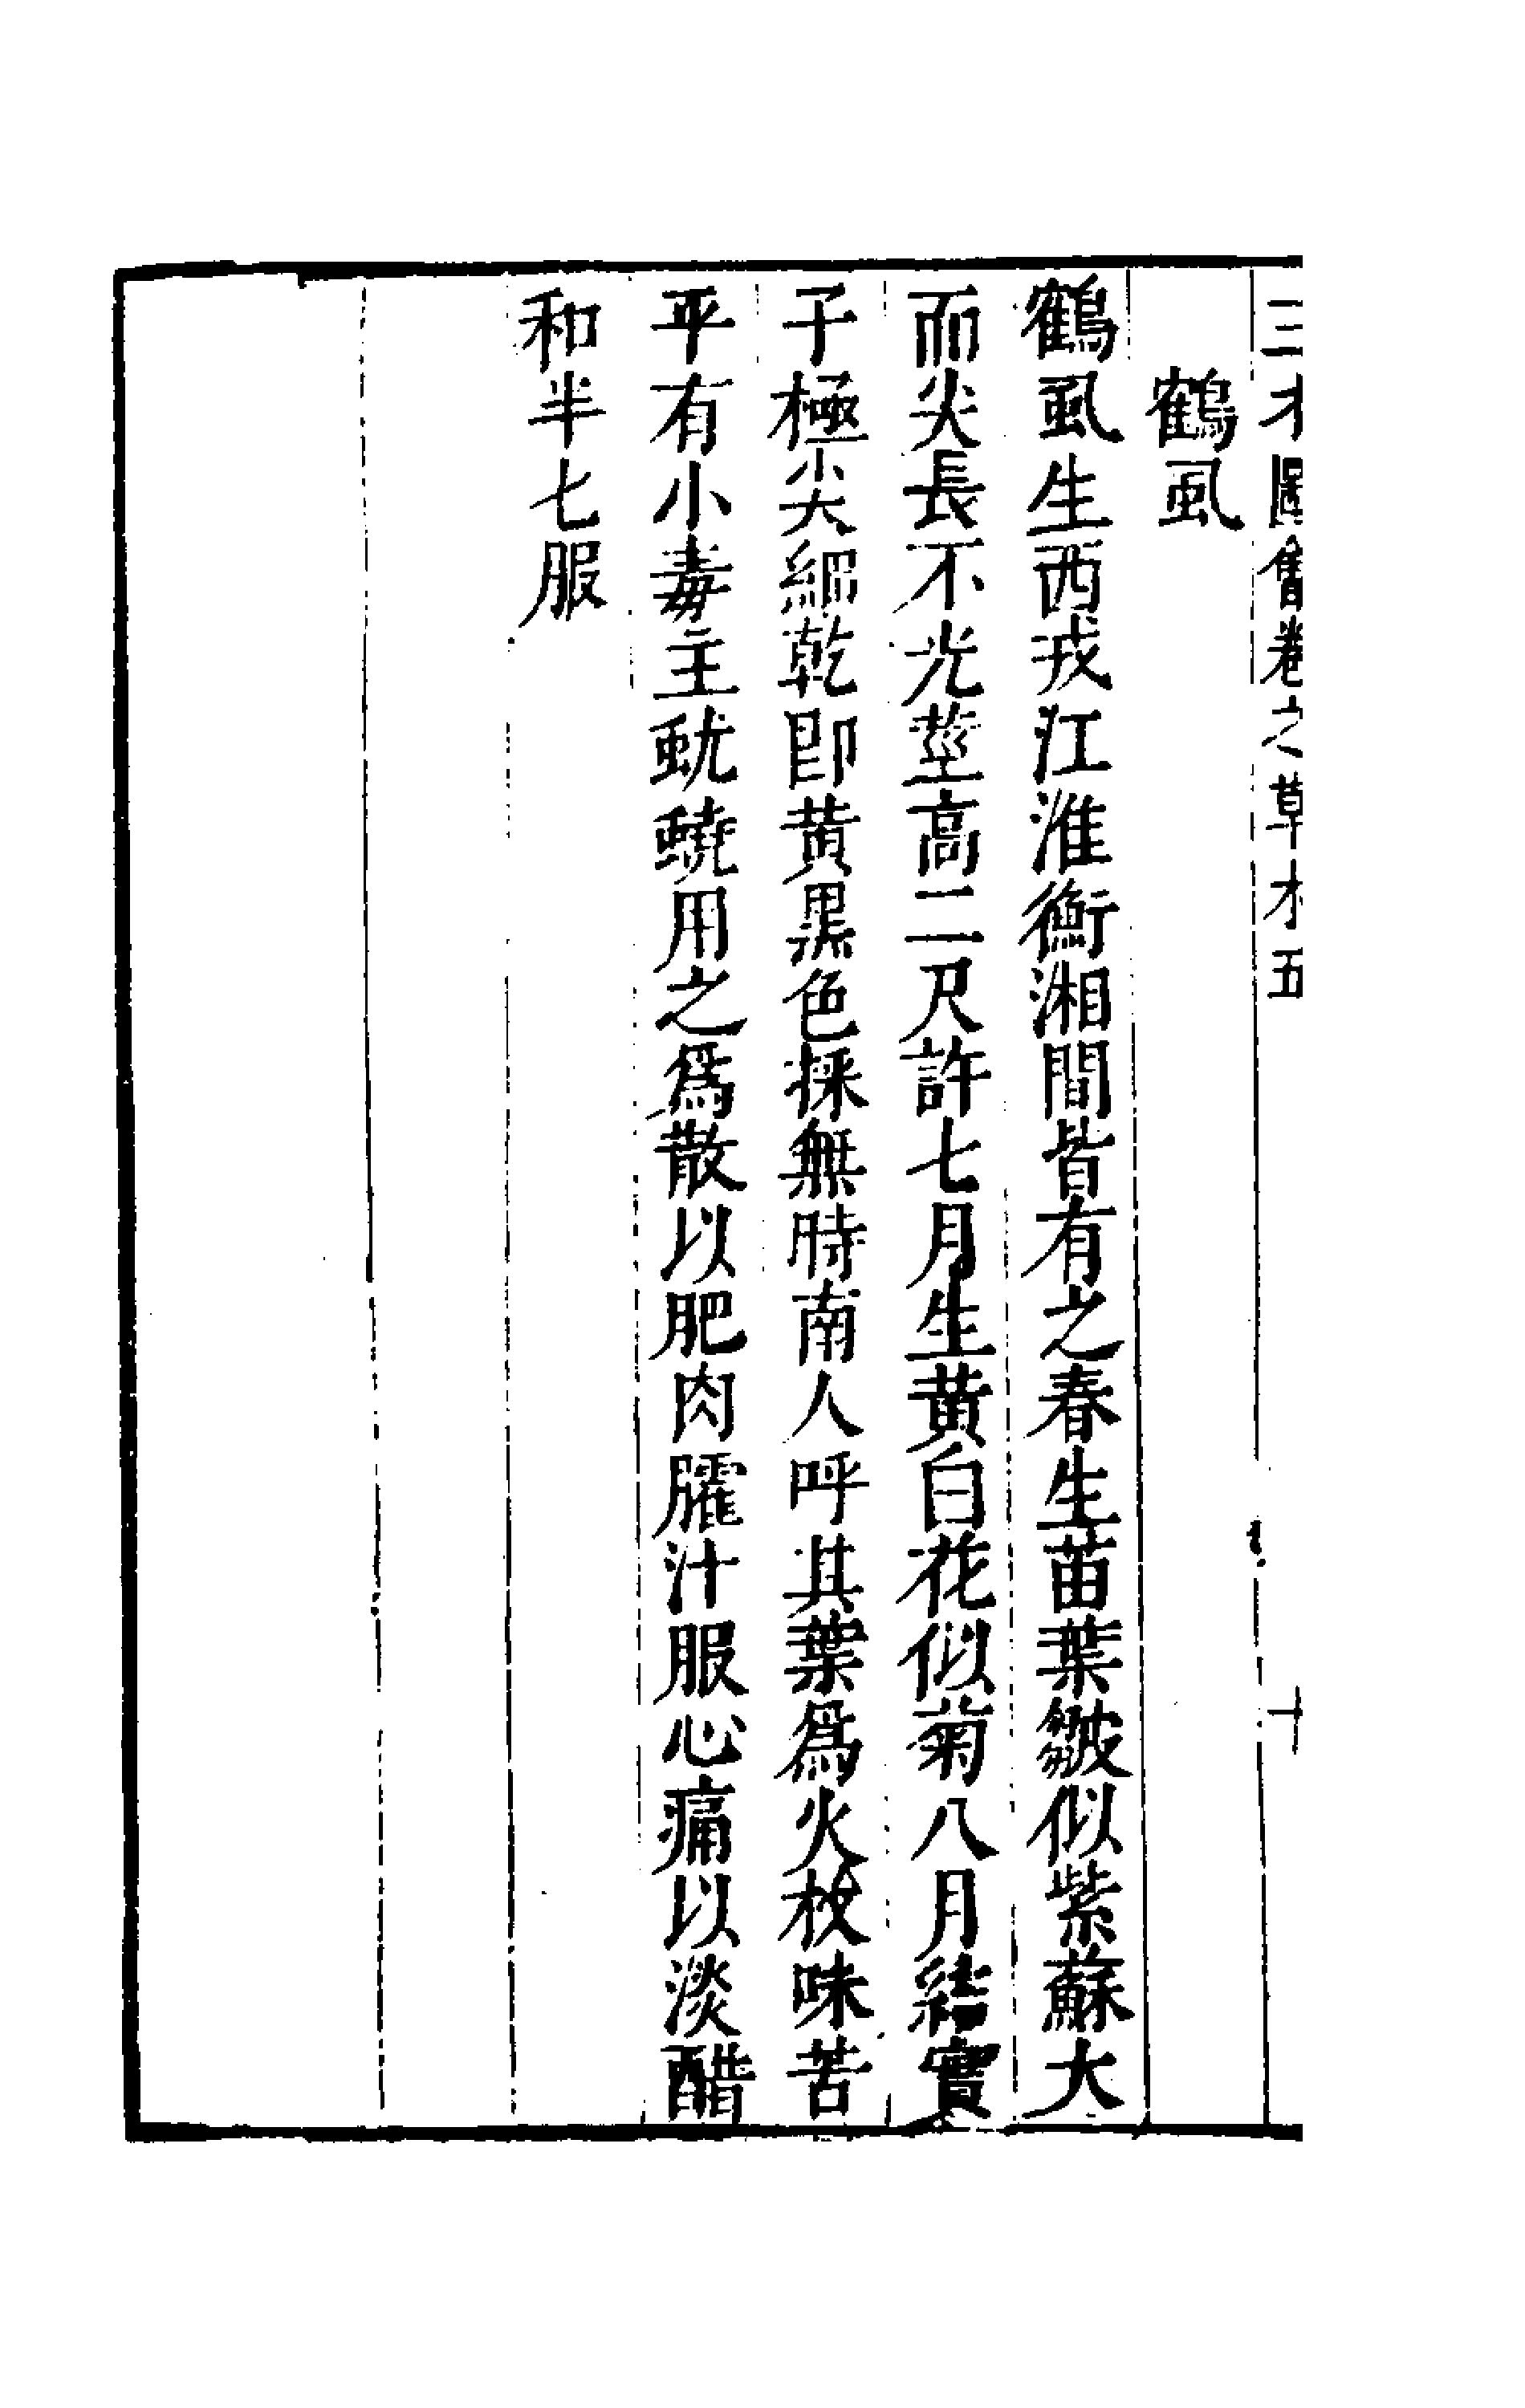 三才圖會卷之草木五 十
鶴虱
鶴虱生西戎江淮衡湘間皆有之春生苗葉皺似紫蘇大
而尖長不光莖高二尺許七月生黃白花似菊八月結實
子極尖細乾即黃黑色採無時南人呼其葉為火杴味苦
平有小毒主蚘蟯用之為散以肥肉臛汁服心痛以淡醋
和半七服